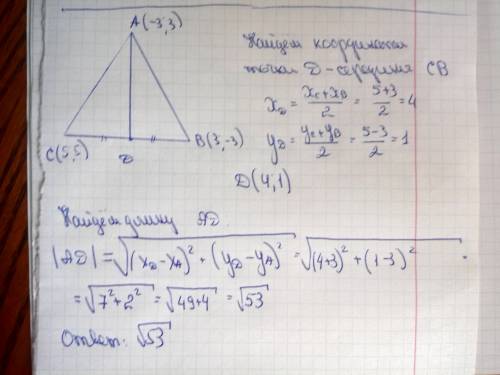 A(-3;3)
C(5;5)
D
B(3;-3)
Найдем координаты
точки D - середина CB
x_D = (x_C + x_B)/2 = (5+3)/2 = 4
y_D = (y_C + y_B)/2 = (5-3)/2 = 1
D(4;1)
Найдём длину AD.
|AD| = √((x_D - x_A)² + (y_D - y_A)²) = √((4+3)² + (1-3)²) =
= √(7² + 2²) = √(49+4) = √53
Ответ: √53